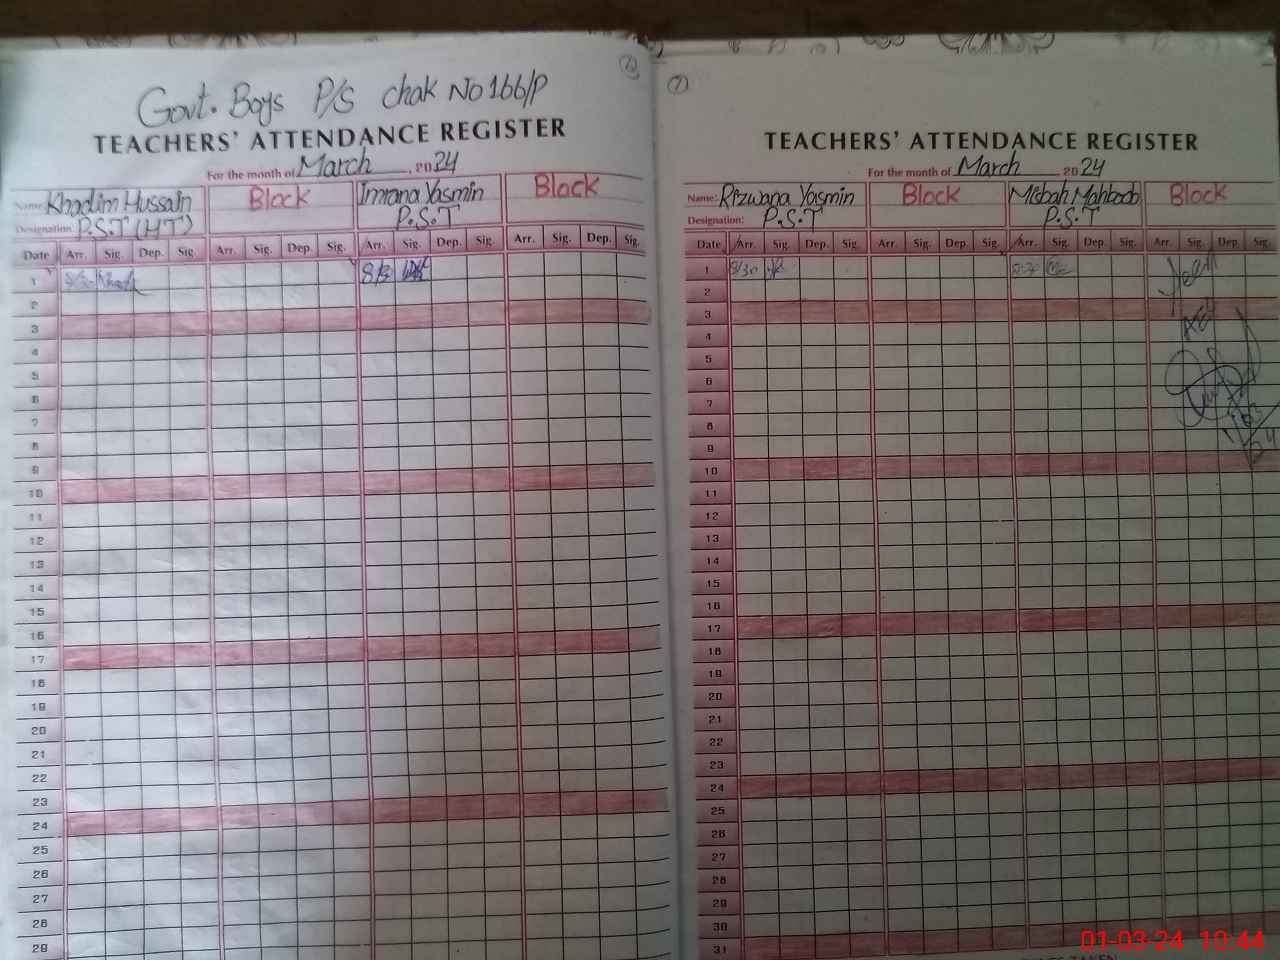 Govt. Boys P/S chak No 166/P
TEACHERS' ATTENDANCE REGISTER
For the month of March, 2024
Name: Khadim Hussain Block Imrana Yasmin Block
Designation: P.S.T (HT) P.S.T
Date Arr. Sig. Dep. Sig. Arr. Sig. Dep. Sig. Arr. Sig. Dep. Sig. Arr. Sig. Dep. Sig.
1 8/30 8/30
2
3
4
5
6
7
8
9
10
11
12
13
14
15
16
17
18
19
20
21
22
23
24
25
26
27
28
29
7
TEACHERS' ATTENDANCE REGISTER
For the month of March 2024
Name: Rizwana Yasmin Block Misbah Mahboob Block
Designation: P.S.T P.S.T
Date Arr. Sig. Dep. Sig. Arr. Sig. Dep. Sig. Arr. Sig. Dep. Sig. Arr. Sig. Dep. Sig.
1 8/30
2
3
4
5
6
7
8
9
10
11
12
13
14
15
16
17
18
19
20
21
22
23
24
25
26
27
28
29
30
31
AEO
1/03/24
01-03-24 10:44